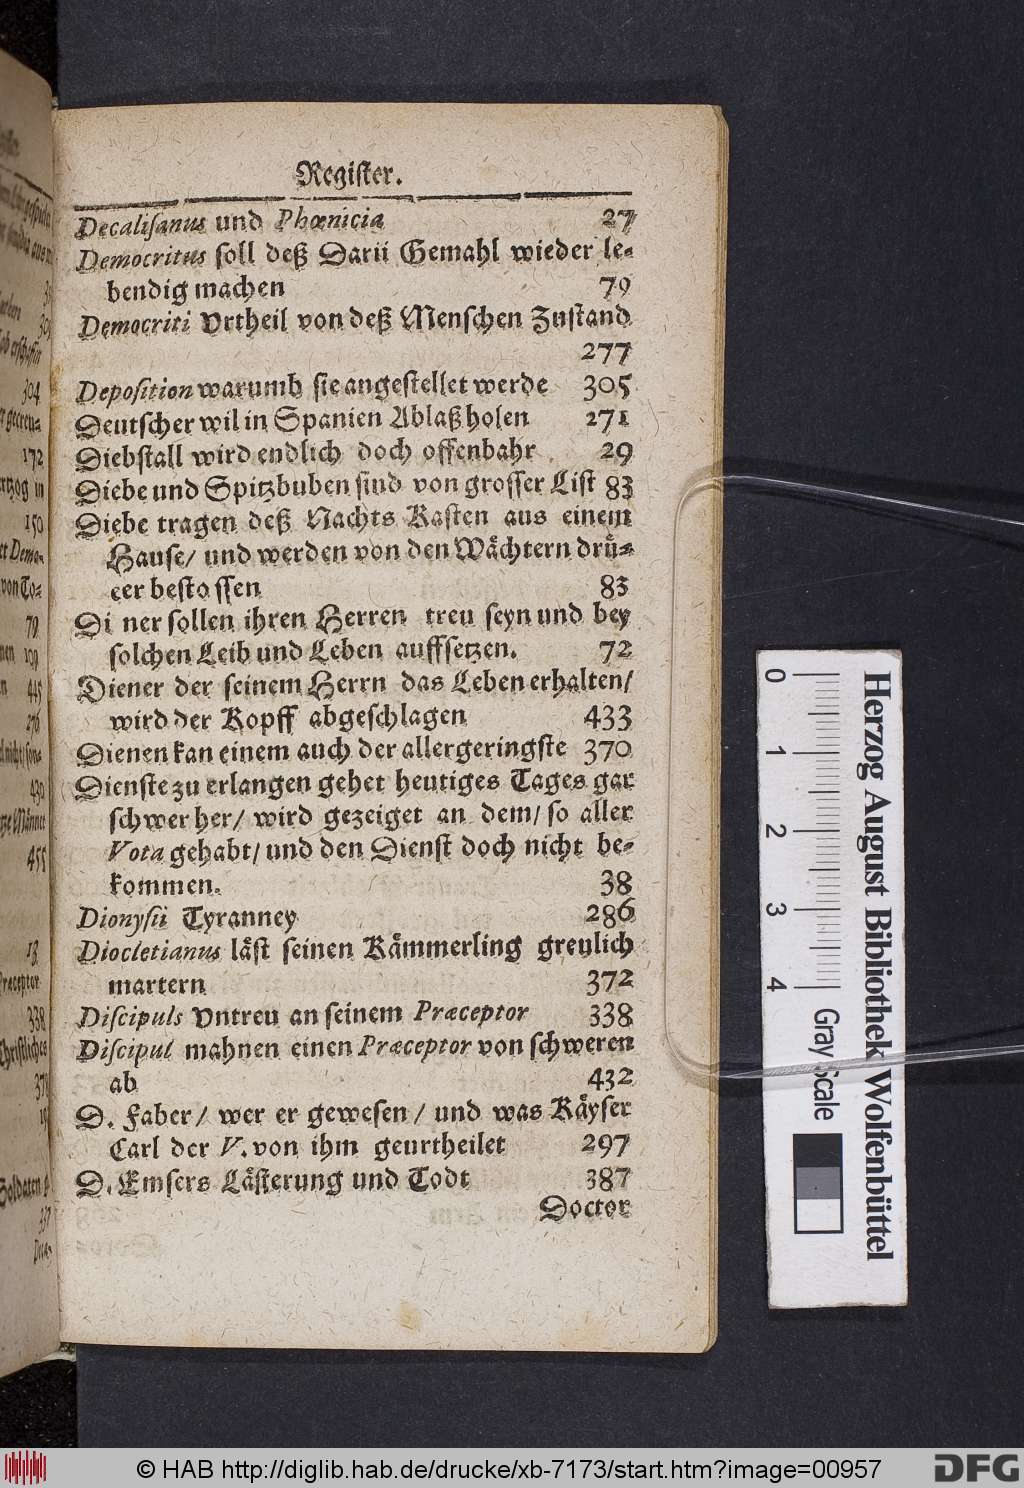 Register.
Decalisanus und Phœnicia 27
Democritus soll deß Darii Gemahl wieder le-
bendig machen 79
Democriti Vrtheil von deß Menschen Zustand
277
Deposition warumb sie angestellet werde 305
Deutscher wil in Spanien Ablaß holen 271
Diebstall wird endlich doch offenbahr 29
Diebe und Spitzbuben sind von grosser List 83
Diebe tragen deß Nachts Kasten aus einem
Hause/ und werden von den Wächtern drü-
cer bestossen 83
Di ner sollen ihren Herren treu seyn und bey
solchen Leib und Leben auffsetzen. 72
Diener der seinem Herrn das Leben erhalten/
wird der Kopff abgeschlagen 433
Dienen kan einem auch der allergeringste 370
Dienste zu erlangen gehet heutiges Tages gar
schwer her/ wird gezeiget an dem/ so aller
Vota gehabt/ und den Dienst doch nicht be-
kommen. 38
Dionysii Tyranney 286
Diocletianus läst seinen Kämmerling greulich
martern 372
Discipuls Vntreu an seinem Præceptor 338
Discipul mahnen einen Præceptor von schweren
ab 432
D. Faber/ wer er gewesen/ und was Käyser
Carl der V. von ihm geurtheilet 297
D. Emsers Lästerung und Todt 387
Doctor
304
172
150
79
139
445
276
430
455
13
Præceptor
338
Christliches
0 1 2 3 4
Gray Scale
Herzog August Bibliothek Wolfenbüttel
© HAB http://diglib.hab.de/drucke/xb-7173/start.htm?image=00957
DFG